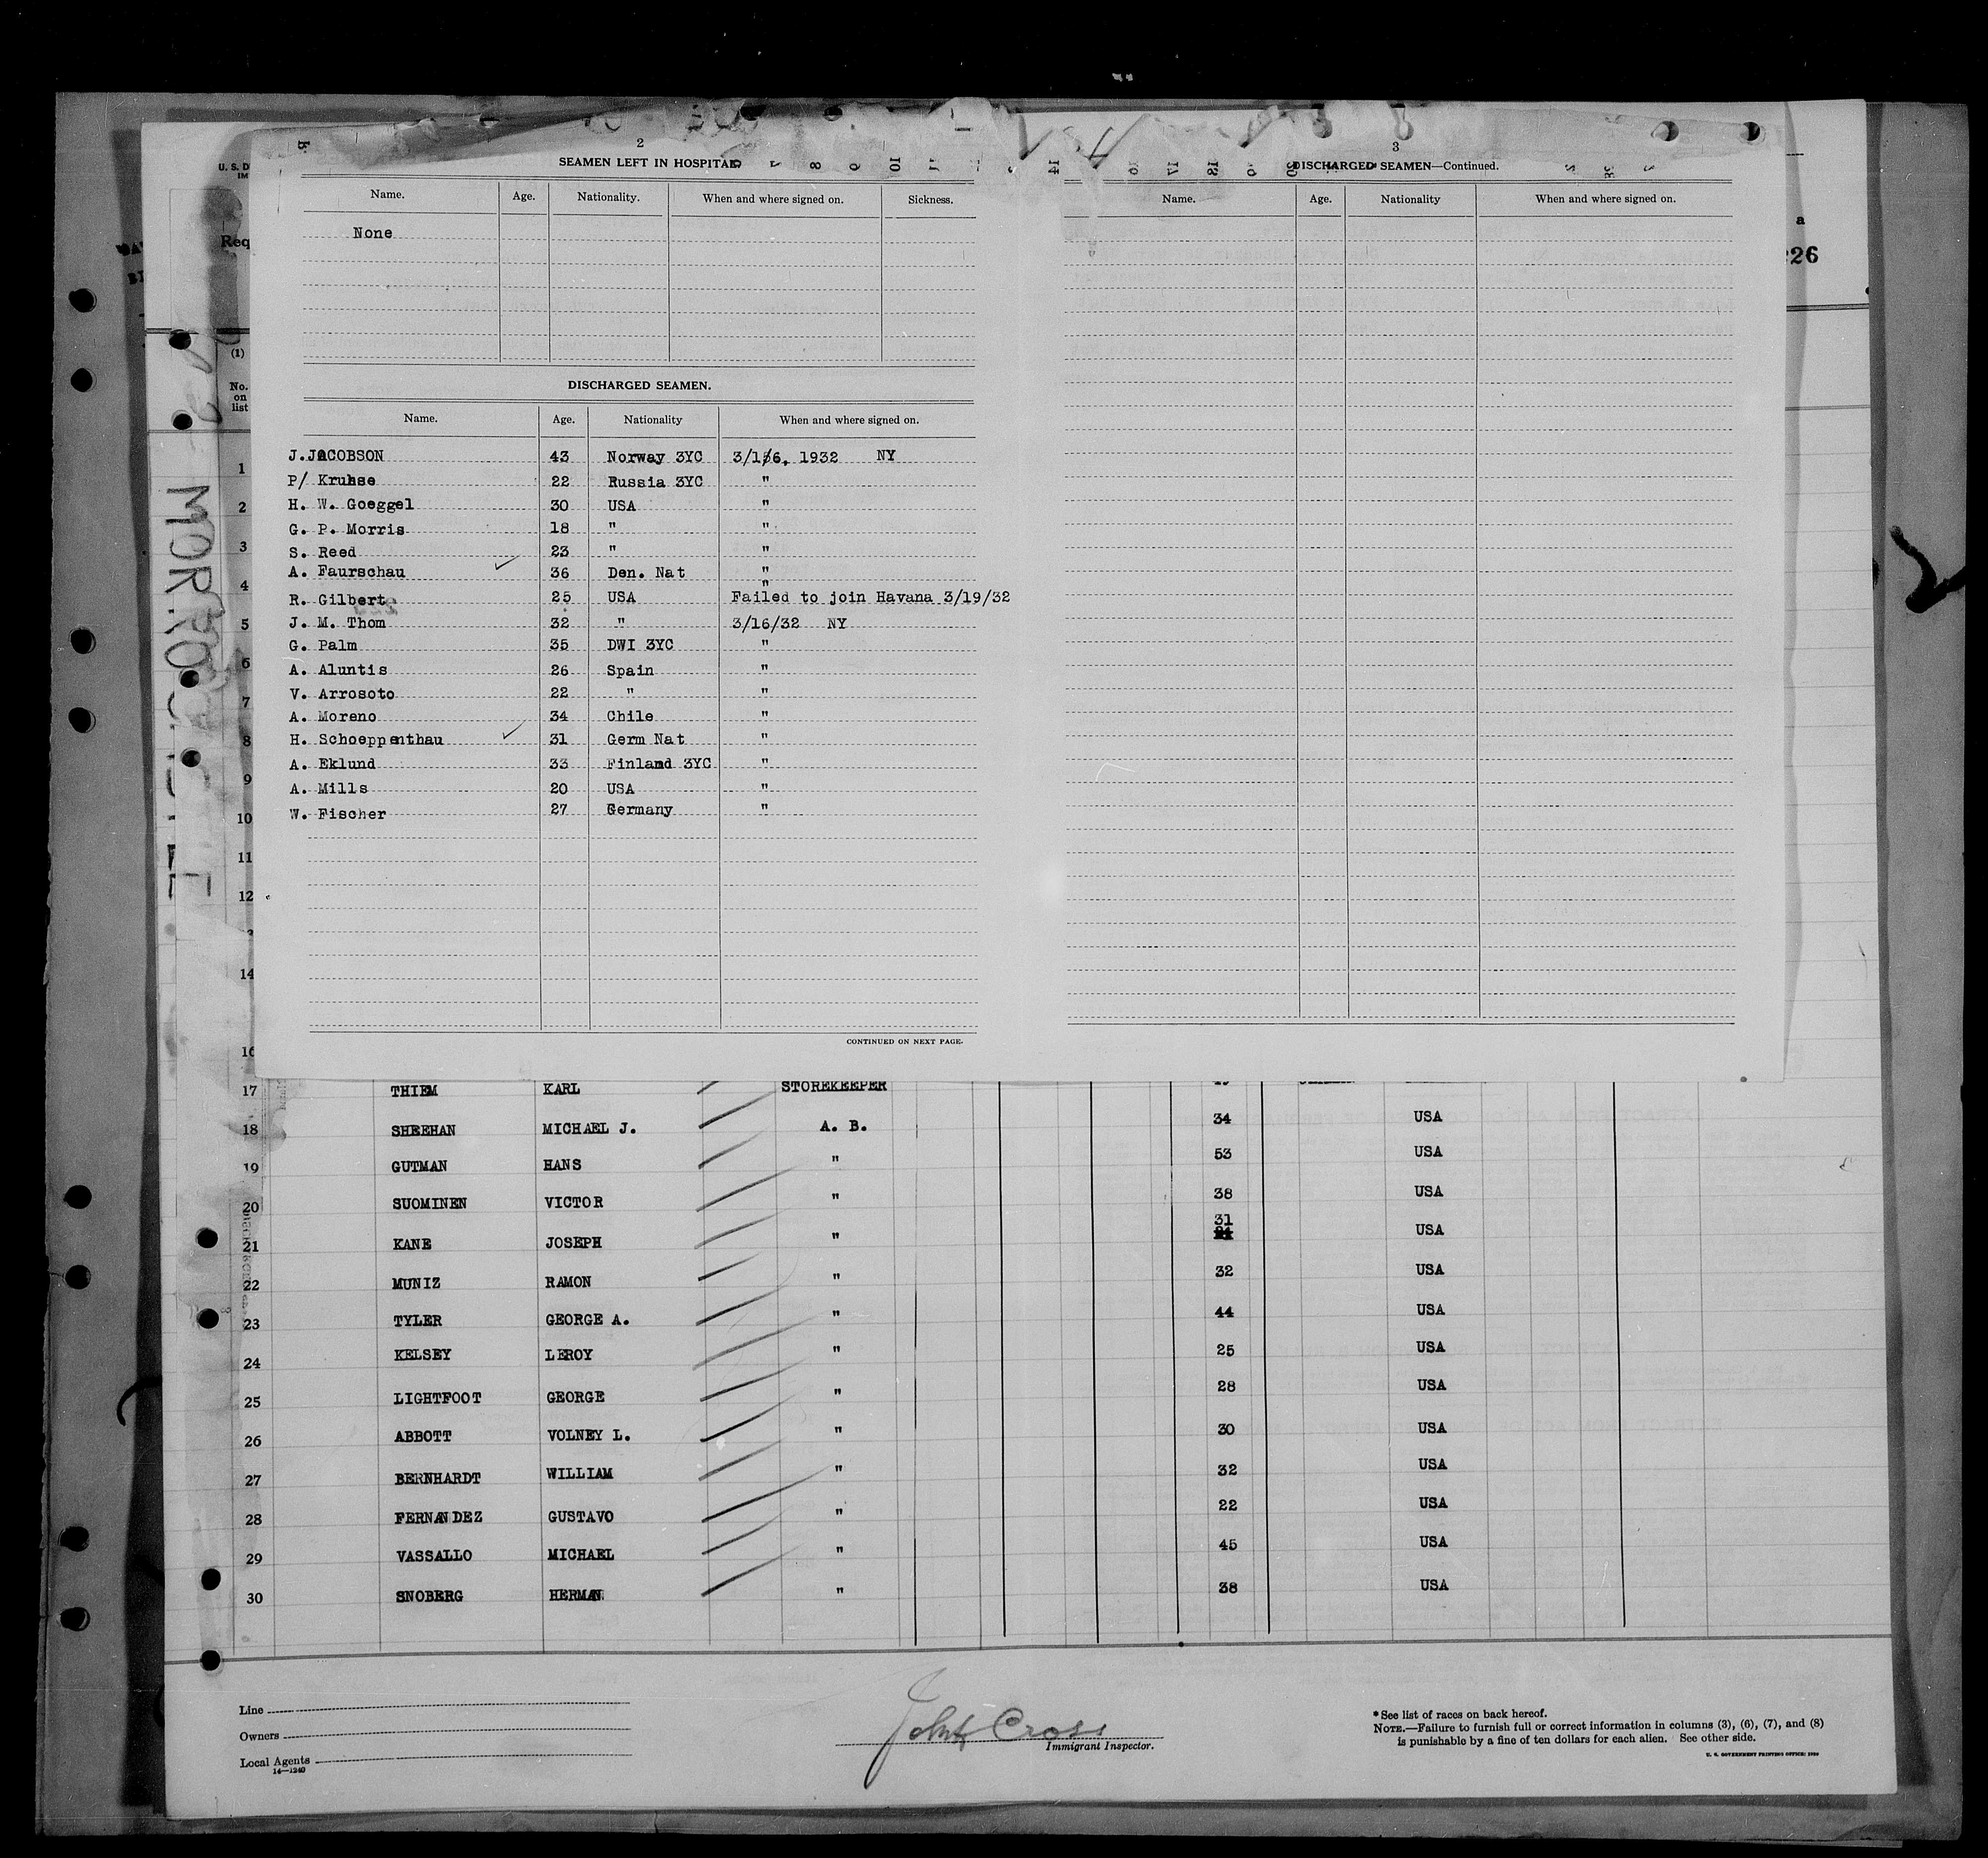 2
SEAMEN LEFT IN HOSPITAL
Name. Age. Nationality. When and where signed on. Sickness.
None
DISCHARGED SEAMEN.
Name. Age. Nationality When and where signed on.
J. JACOBSON 43 Norway 3YC 3/16, 1932 NY
P/ Kruhse 22 Russia 3YC "
H. W. Goeggel 30 USA "
G. P. Morris 18 " "
S. Reed 23 " "
A. Faurschau 36 Den. Nat "
"
R. Gilbert 25 USA Failed to join Havana 3/19/32
J. M. Thom 32 " 3/16/32 NY
G. Palm 35 DWI 3YC "
A. Aluntis 26 Spain "
V. Arrosoto 22 " "
A. Moreno 34 Chile "
H. Schoeppenthau 31 Germ Nat "
A. Eklund 33 Finland 3YC "
A. Mills 20 USA "
W. Fischer 27 Germany "
CONTINUED ON NEXT PAGE.
3
DISCHARGED SEAMEN—Continued.
Name. Age. Nationality When and where signed on.
U. S. D
IM
Req
a
226
(1)
No. on list
1
2
3
4
5
6
7
8
9
10
11
12
14
16
MORRO
17 THIEM KARL STOREKEEPER
18 SHEEHAN MICHAEL J. A. B. 34 USA
19 GUTMAN HANS " 53 USA
20 SUOMINEN VICTOR " 38 USA
21 KANE JOSEPH " 31 USA
22 MUNIZ RAMON " 32 USA
23 TYLER GEORGE A. " 44 USA
24 KELSEY LEROY " 25 USA
25 LIGHTFOOT GEORGE " 28 USA
26 ABBOTT VOLNEY L. " 30 USA
27 BERNHARDT WILLIAM " 32 USA
28 FERNANDEZ GUSTAVO " 22 USA
29 VASSALLO MICHAEL " 45 USA
30 SNOBERG HERMAN " 38 USA
Line
Owners
Local Agents
14—1240
John Cross
Immigrant Inspector.
*See list of races on back hereof.
NOTE.—Failure to furnish full or correct information in columns (3), (6), (7), and (8)
is punishable by a fine of ten dollars for each alien. See other side.